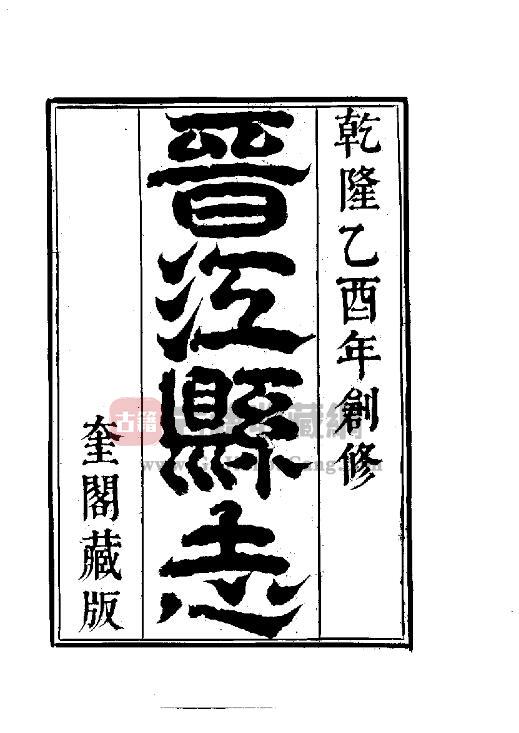 乾隆乙酉年創修
晉江縣志
奎閣藏版
古籍